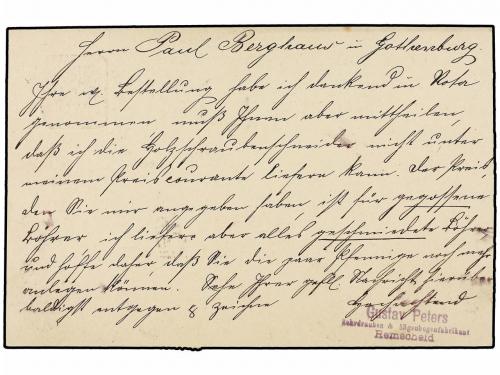 Herrn Paul Berghaus in Gothenburg.
Ihre w. Bestellung habe ich dankend in Nota
genommen muß Ihnen aber mittheilen,
daß ich die Holzschraubenschneider nicht unter
meinem Preiscourante liefern kann. Der Preis
den Sie mir angegeben haben, ist für gegossene
Bohrer ich liefere aber alles geschmiedete Bohrer
und hoffe daher daß Sie die paar Pfennige noch mehr
anlegen können. Sehe Ihrer gefl. Nachricht hierüber
baldigst entgegen & zeichne Hochachtend
Gustav Peters
& Sägenbogenfabrikant
Remscheid